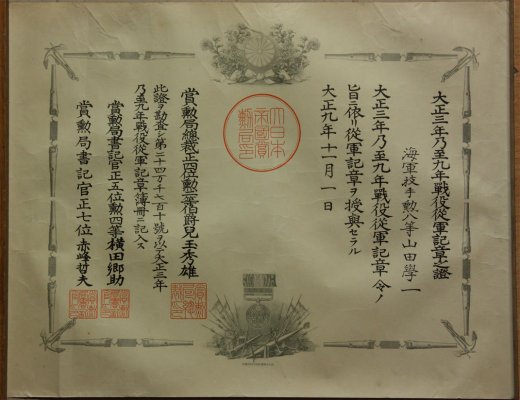 大正三年乃至九年戰役從軍記章之證
海軍技手勲八等山田學一
大正三年乃至九年戰役從軍記章令ノ
旨ニ依リ從軍記章ヲ授與セラル
大正九年十一月一日
大日本
帝國賞
勲局印
賞勲局總裁正四位勲二等伯爵兒玉秀雄
此證ヲ勘査シ第二十四万千七百十號ヲ以テ大正三年
乃至九年戰役從軍記章簿冊ニ記入ス
賞勲局書記官正五位勲四等横田郷助
賞勲局書記官正七位赤峰哲夫